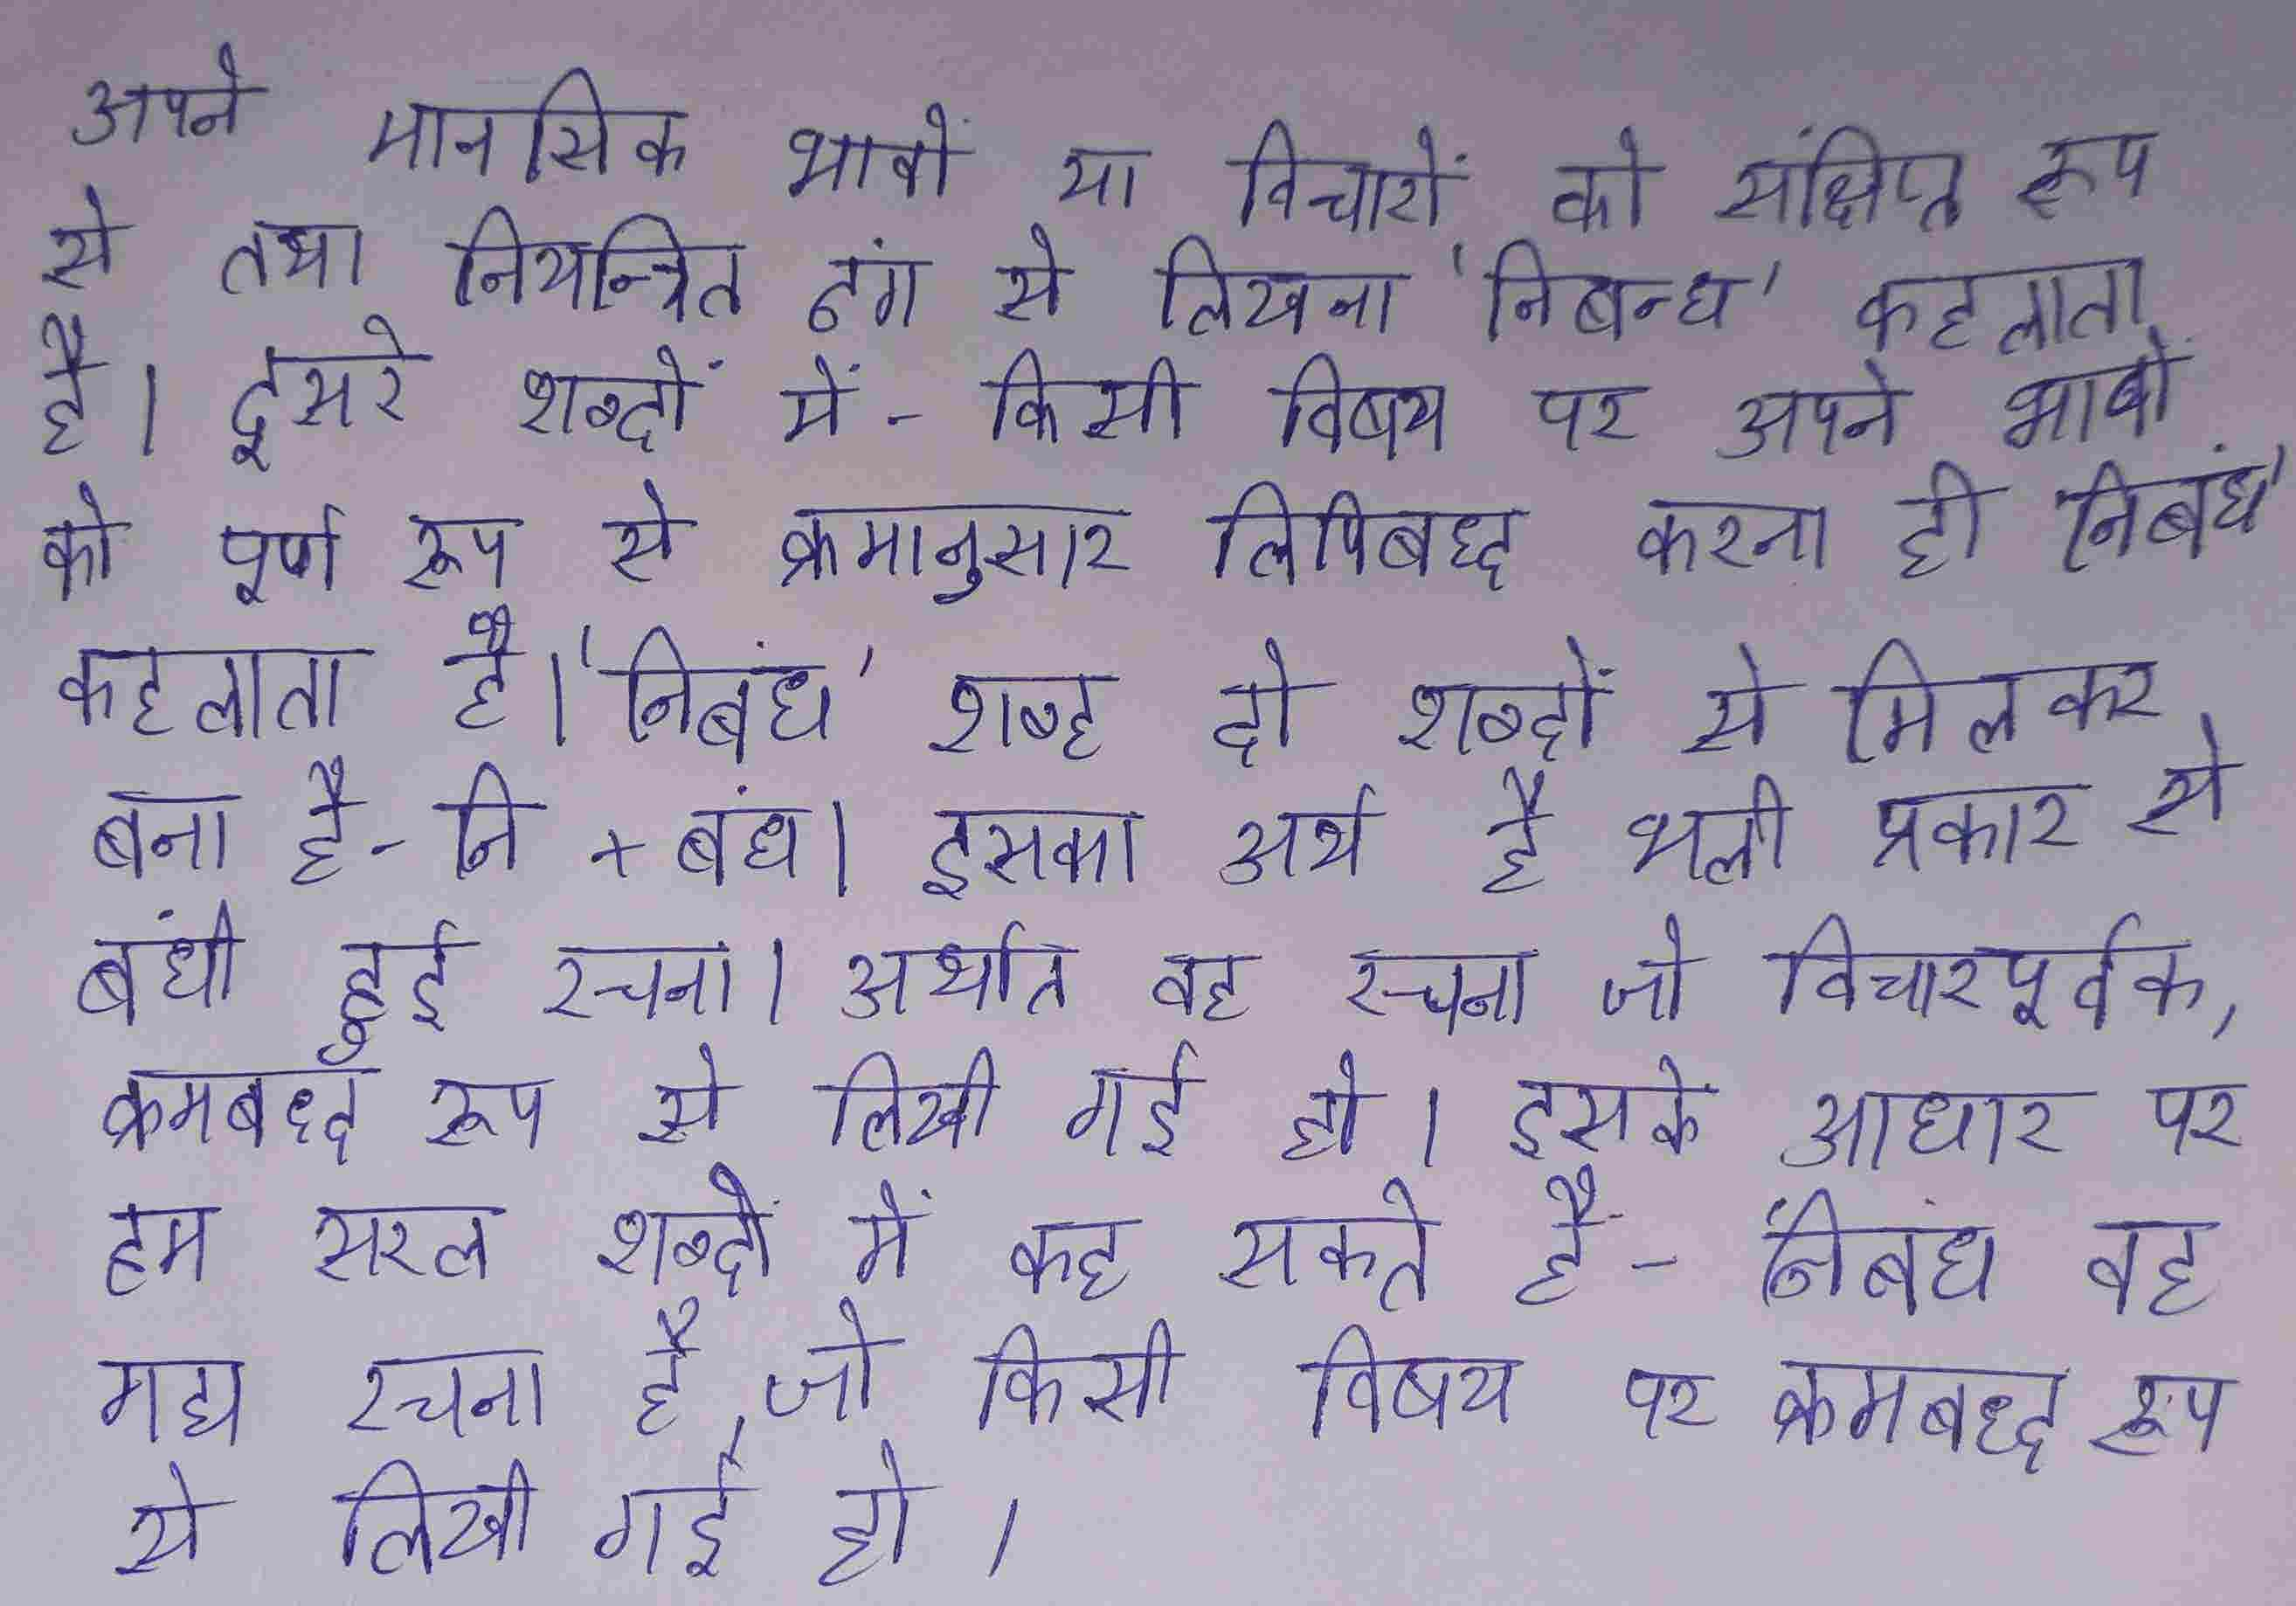 अपने मानसिक भावों या विचारों को संक्षिप्त रूप
से तथा नियन्त्रित ढंग से लिखना 'निबन्ध' कहलाता
है। दूसरे शब्दों में - किसी विषय पर अपने भावों
को पूर्ण रूप से क्रमानुसार लिपिबद्ध करना ही निबंध'
कहलाता है। 'निबंध' शब्द दो शब्दों से मिलकर
बना है - नि + बंध। इसका अर्थ है भली प्रकार से
बंधी हुई रचना। अर्थात वह रचना जो विचारपूर्वक,
क्रमबद्ध रूप से लिखी गई हो। इसके आधार पर
हम सरल शब्दों में कह सकते है - निबंध वह
गद्य रचना है, जो किसी विषय पर क्रमबद्ध रूप
से लिखी गई हो।